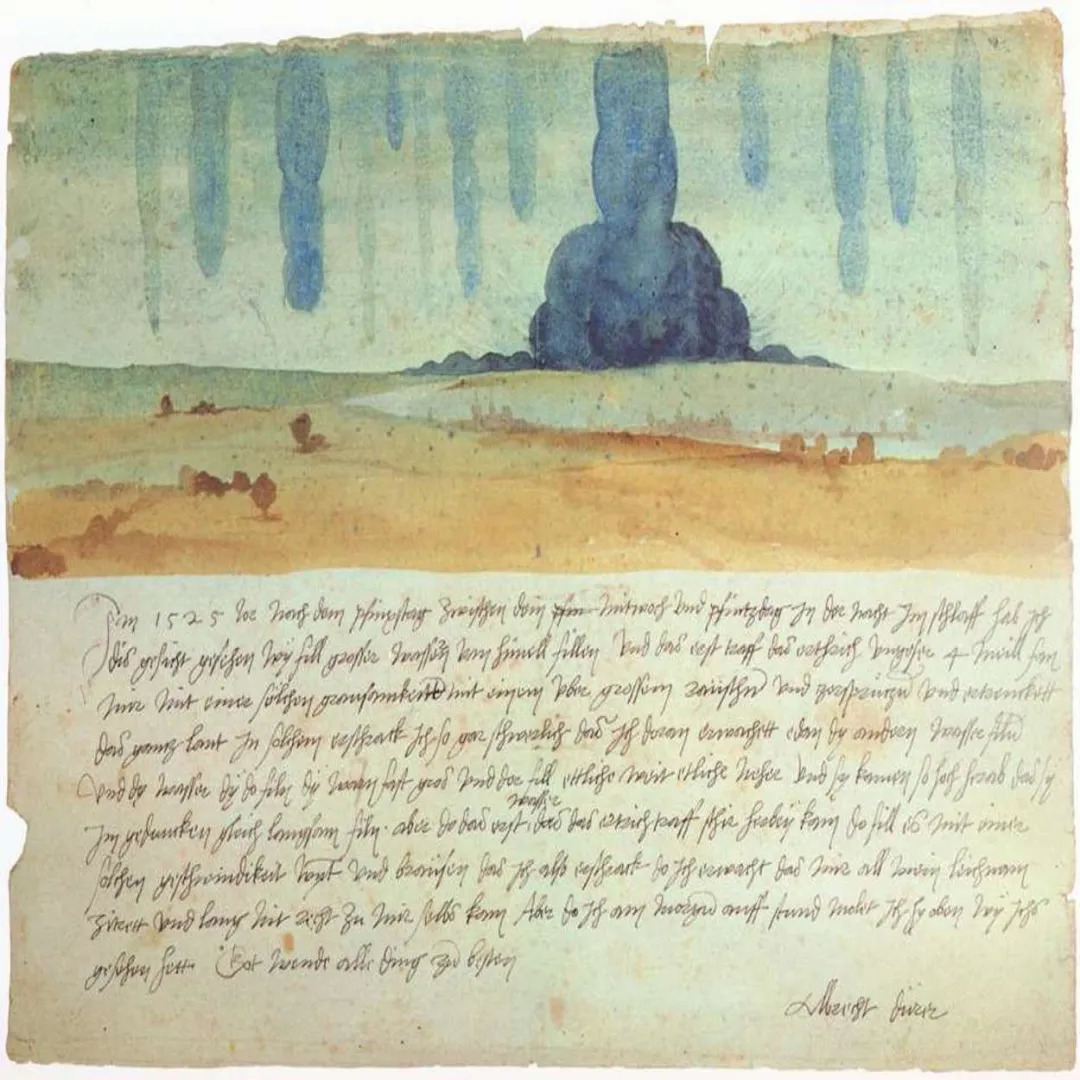 Im 1525 Jor noch dem pfinxstag zwischen dem pfin mitwoch und pfintzdag in der nacht im schlaff hab ich
dis gesicht gesehen wy fill grosser wassern vom himell fillen Und das erst traff das erthrich ungefer 4 meill fan
mir mit einer solchen grausamkeitt mit einem uber grossem raüschn und zersprützn und ertrenckett
das gantz lant In solchem erschrack ich so gar schwerlich das ich doran erwachett edan dy andern wasser filn
Und dy wasser dy do filn dy warn fast gros und der fill ettliche weit etliche neher und sy kamen so hoch herab das sy
im gedancken gleich langsam filn. aber do das erst wasser das das ertrich traff schir herbey kam do fill es mit einer
solchen geschwindikeit wynt und braüsen das ich also erschrack do ich erwacht das mir all mein leichnam
zitrett und lang nit recht zu mir selbs kam Aber do ich am morgn auff stund molet ich hy oben wy ichs
gesehen hett. Got wende alle ding zu besten
Albrecht dürer